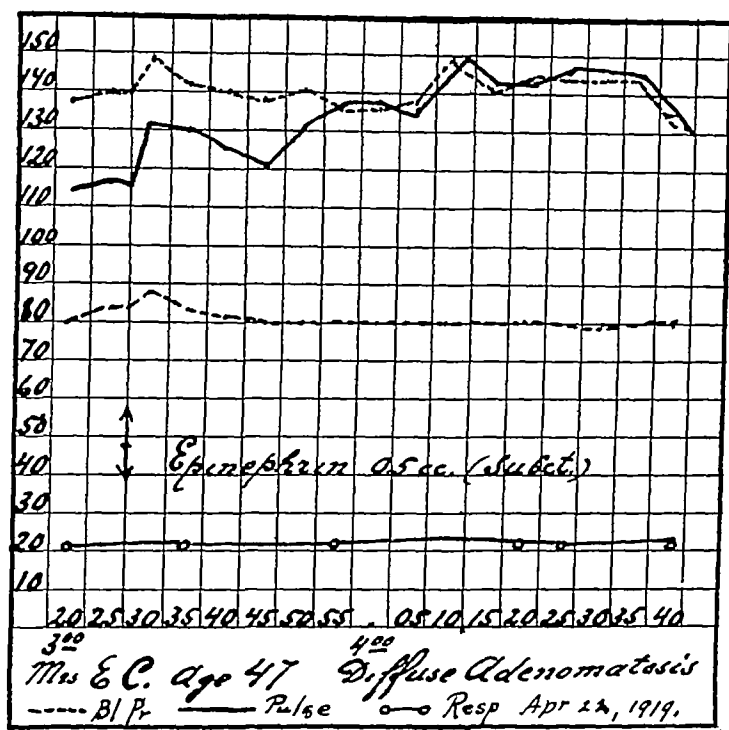 150
140
130
120
110
100
90
80
70
60
50
Epinephrin 0.5 cc. (Subct.)
40
30
20
10
20 25 30 35 40 45 50 55 . 05 10 15 20 25 30 35 40
3 00 4 00
Mrs E C. age 47 Diffuse Adenomatosis
Bl Pr Pulse Resp Apr 22, 1919.